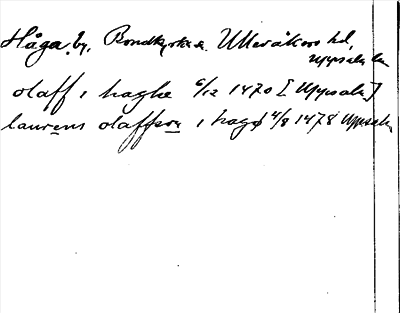 Håga, by, Bondkyrka s. Ulleråkers hd,
Uppsala län
olaff i haghe 6/12 1470 [Uppsala]
laurens olaffson i hagø 4/8 1478 Uppsala